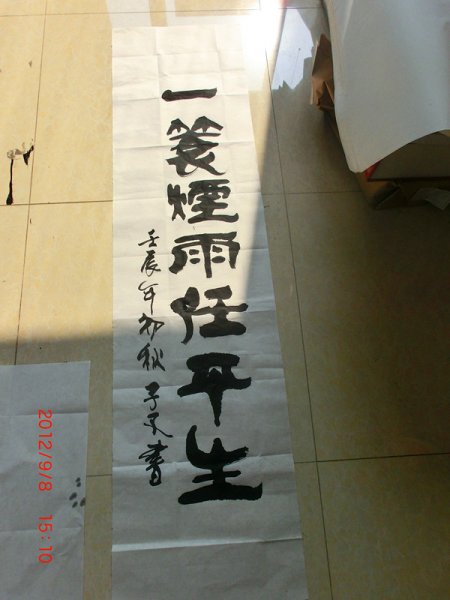 一蓑煙雨任平生
壬辰年初秋 子文書
2012/9/8 15:10